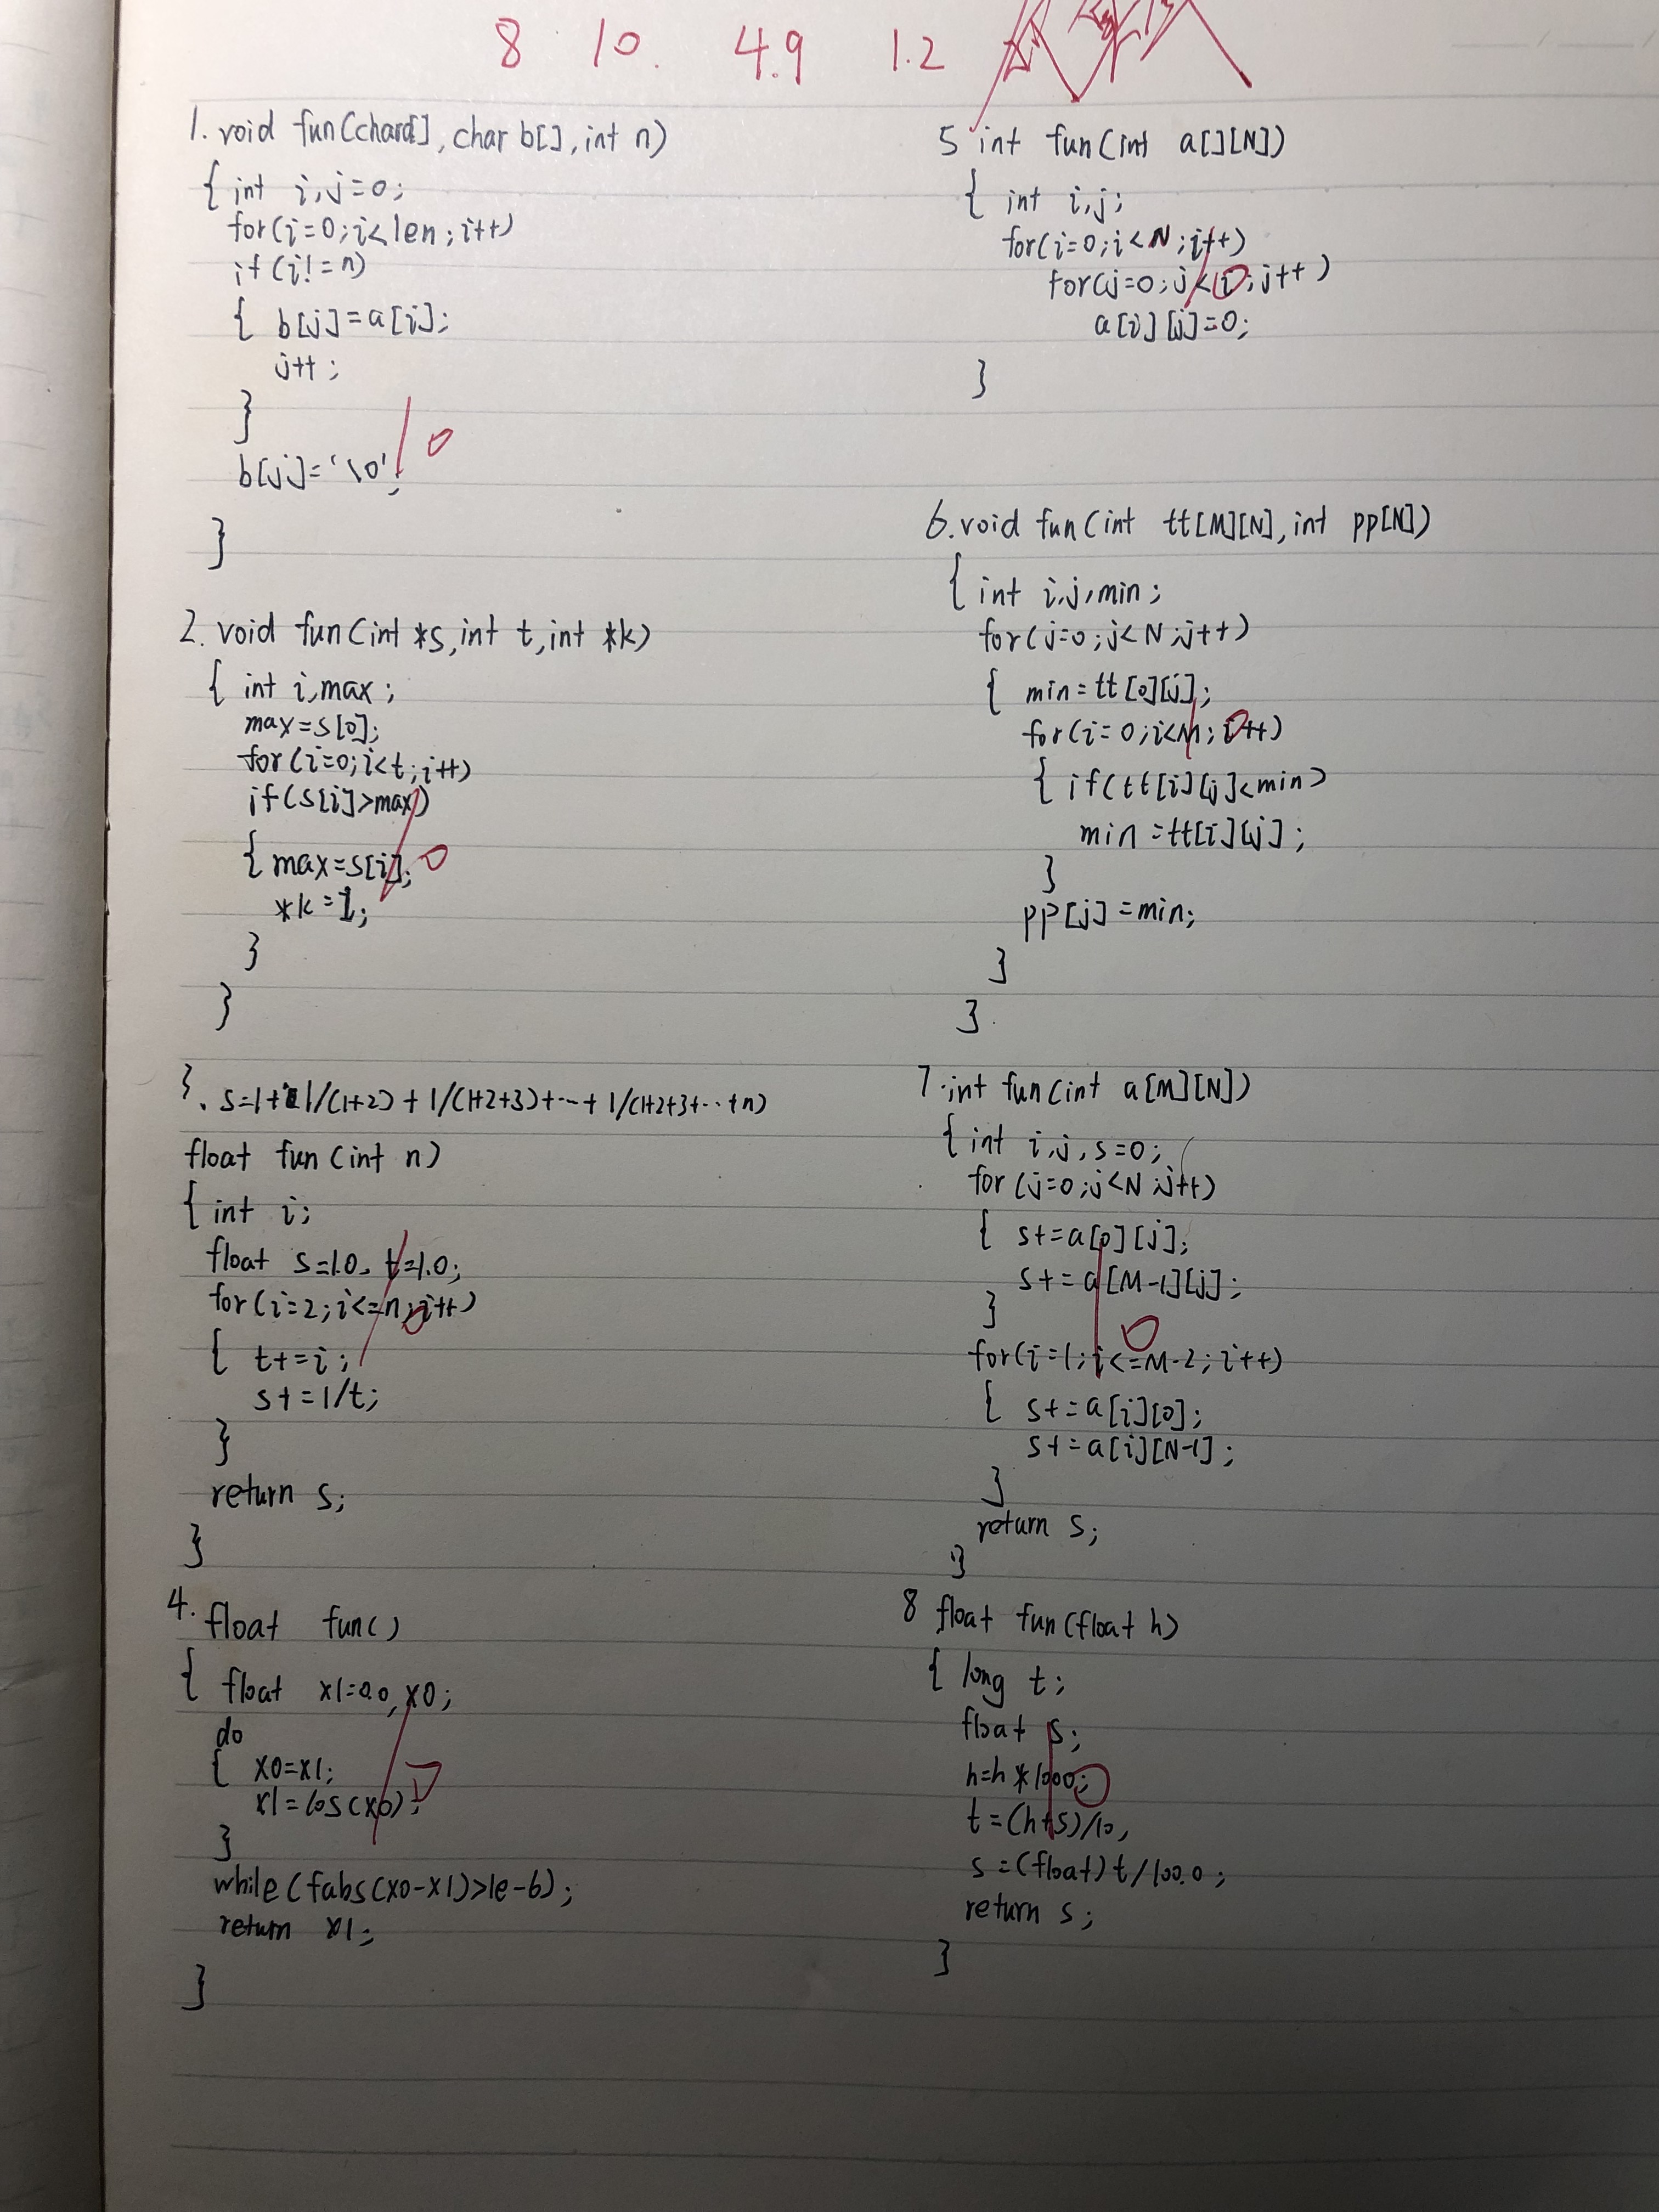 8 10. 4.9 1.2
1. void fun(char a[], char b[], int n)
{ int i,j=0;
for(i=0;i<len;i++)
if(i!=n)
{ b[j]=a[i];
j++;
}
b[j]='\0';
}
2. void fun(int *s,int t,int *k)
{ int i,max;
max=s[0];
for(i=0;i<t;i++)
if(s[i]>max)
{ max=s[i];
*k=1;
}
}
3. s=1+1/(1+2)+1/(1+2+3)+…+1/(1+2+3+…+n)
float fun(int n)
{ int i;
float s=1.0, t=1.0;
for(i=2;i<=n;i++)
{ t+=i;
s+=1/t;
}
return s;
}
4. float fun()
{ float x1=0.0,x0;
do
{ x0=x1;
x1=cos(x0);
}
while(fabs(x0-x1)>1e-6);
return x1;
}
5 int fun(int a[][N])
{ int i,j;
for(i=0;i<N;i++)
for(j=0;j<i;j++)
a[i][j]=0;
}
6. void fun(int tt[M][N],int pp[N])
{ int i,j,min;
for(j=0;j<N;j++)
{ min=tt[0][j];
for(i=0;i<M;i++)
{ if(tt[i][j]<min)
min=tt[i][j];
}
pp[j]=min;
}
}
7. int fun(int a[M][N])
{ int i,j,s=0;
for(j=0;j<N;j++)
{ s+=a[0][j];
s+=a[M-1][j];
}
for(i=1;i<=M-2;i++)
{ s+=a[i][0];
s+=a[i][N-1];
}
return s;
}
8 float fun(float h)
{ long t;
float s;
h=h*1000;
t=(h+5)/10,
s=(float)t/100.0;
return s;
}